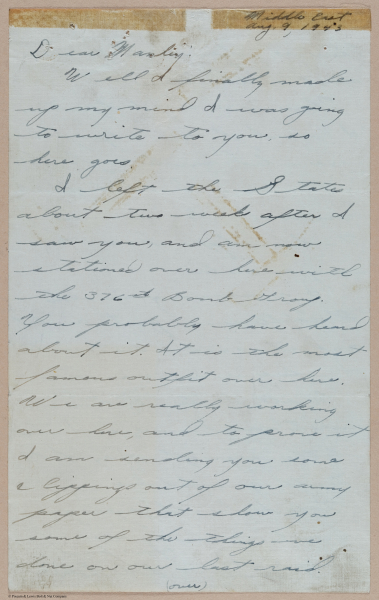 Middle East
Aug. 9, 1943
Dear Manly:
Well I finally made
up my mind I was going
to write to you, so
here goes.
I left the States
about two week after I
saw you, and am now
stationed over here with
the 376th Bomb Group.
You probably have heard
about it. It is the most
famous outfit over here.
We are really working
over here, and to prove it
I am sending you some
clippings out of our army
paper that show you
some of the things we
done on our last raid.
(over)